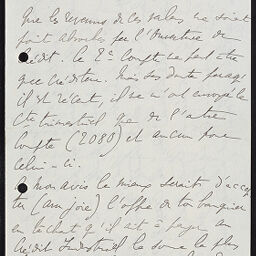 que les revenus de ces valeurs ne soient
point absorbés par l'ouverture de
crédit. Le 2e Compte ne peut être
que créditeur. Mais sans doute parce qu'
il est récent, il ne m'ont envoyé le
Cte trimestriel que de l'autre
Compte (2080) et aucun pour
celui-ci.
A mon avis le mieux serait d'accep
ter (avec joie) l'offre de ton banquier
en tâchant qu'il ait à payer au
Crédit Industriel la somme la plus